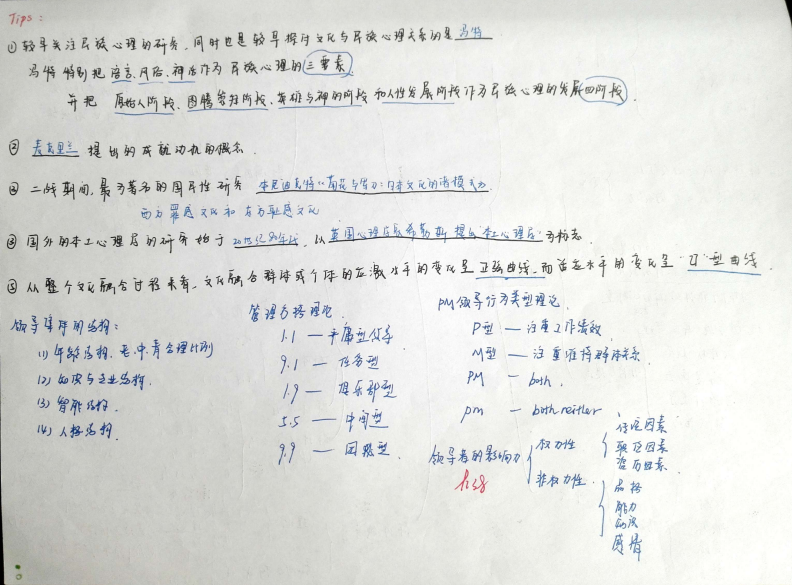 Tips:
① 较早关注民族心理的研究,同时也是较早探讨文化与民族心理关系的是 冯特
冯特特别把语言、风俗、神话作为民族心理的三要素
并把 原始人阶段、图腾崇拜阶段、英雄与神的阶段和人性发展阶段作为民族心理的发展四阶段.
② 麦克里兰 提出的成就动机的概念.
③ 二战期间,最为著名的国民性研究 本尼迪克特《菊花与刀:日本文化的诸模式》.
西方罪感文化和东方耻感文化
④ 国外的本土心理层的研究始于 20世纪80年代,以英国心理层家希勒斯 提出"本土心理层"为标志.
⑤ 从整个文化融合过程来看,文化融合群体或个体的应激水平的变化呈正弦曲线,而适应水平的变化呈"U"型曲线.
领导集体的结构:
(1) 年龄结构,老、中、青合理比例
(2) 知识与专业结构.
(3) 智能结构.
(4) 人格结构.
管理方格理论.
1.1 — 平庸型领导
9.1 — 任务型
1.9 — 俱乐部型
5.5 — 中间型
9.9 — 团队型
PM领导行为类型理论.
P型 — 注重工作绩效
M型 — 注重维持群体关系
PM — both.
pm — both neither.
领导者的影响力
权力性
传统因素
职位因素
资历因素
非权力性
品格
能力
知识
感情